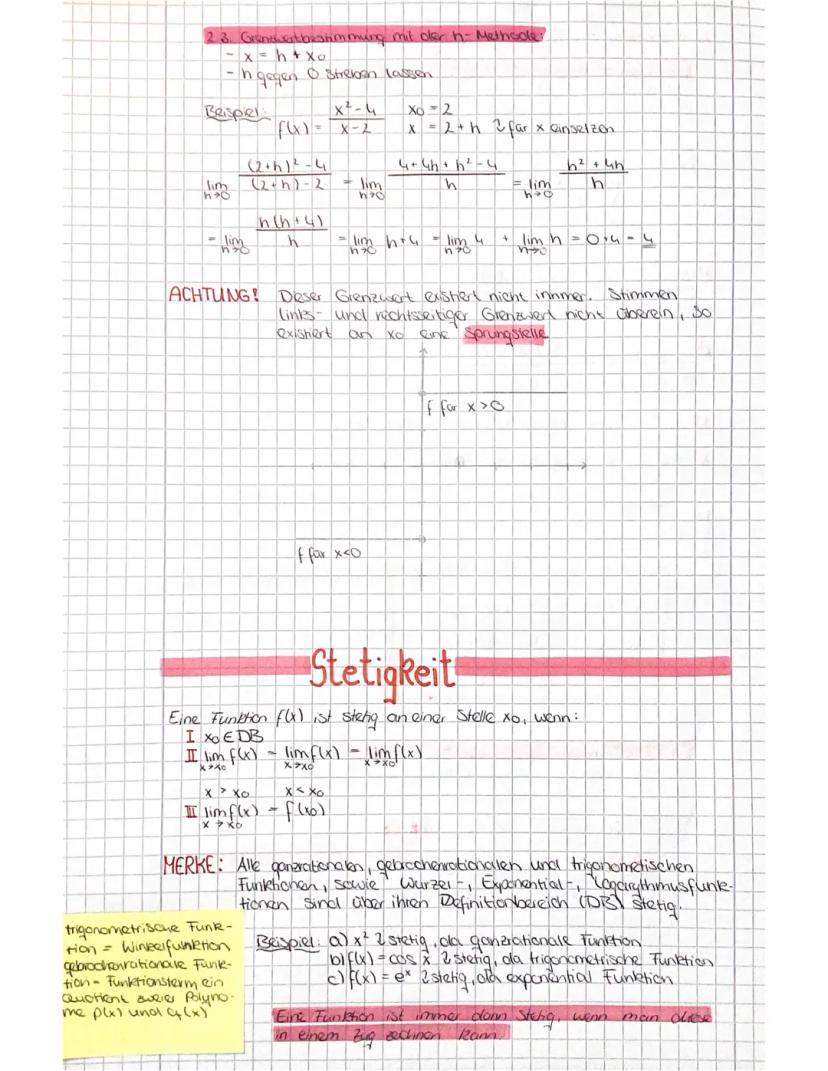 2.3. Grenzwertbestimmung mit der h-Methode:
- x = h + x0
- h gegen 0 streben lassen
Beispiel: f(x) = (x² - 4)/(x - 2) x0 = 2
x = 2 + h für x einsetzen
lim h→0 ((2+h)² - 4)/((2+h) - 2) = lim h→0 (4 + 4h + h² - 4)/h = lim h→0 (h² + 4h)/h
= lim h→0 h(h+4)/h = lim h→0 h+4 = lim h→0 4 + lim h→0 h = 0+4 = 4
ACHTUNG! Dieser Grenzwert existiert nicht immer. Stimmen
links- und rechtsseitiger Grenzwert nicht überein, so
existiert an x0 eine Sprungstelle
f für x>0
f für x<0
Stetigkeit
Eine Funktion f(x) ist stetig an einer Stelle x0, wenn:
I x0 ∈ DB
II lim x→x0 f(x) = lim x→x0 f(x) = lim x→x0 f(x)
x > x0 x < x0
III lim x→x0 f(x) = f(x0)
MERKE: Alle ganzrationalen, gebrochenrationalen und trigonometischen
Funktionen, sowie Wurzel-, Exponential-, Logarythmusfunk-
tionen sind über ihren Definitionbereich (DB) stetig.
trigonometrische Funk-
tion = Winkelfunktion
gebrochenrationale Funk-
tion = Funktionsterm ein
Quotient zweier Polyno-
me p(x) und q(x)
Beispiel: a) x² stetig, da ganzrationale Funktion
b) f(x) = cos x stetig, da trigonometrische Funktion
c) f(x) = eˣ stetig, da exponential Funktion
Eine Funktion ist immer dann stetig, wenn man diese
in einem Zug zeichnen kann!